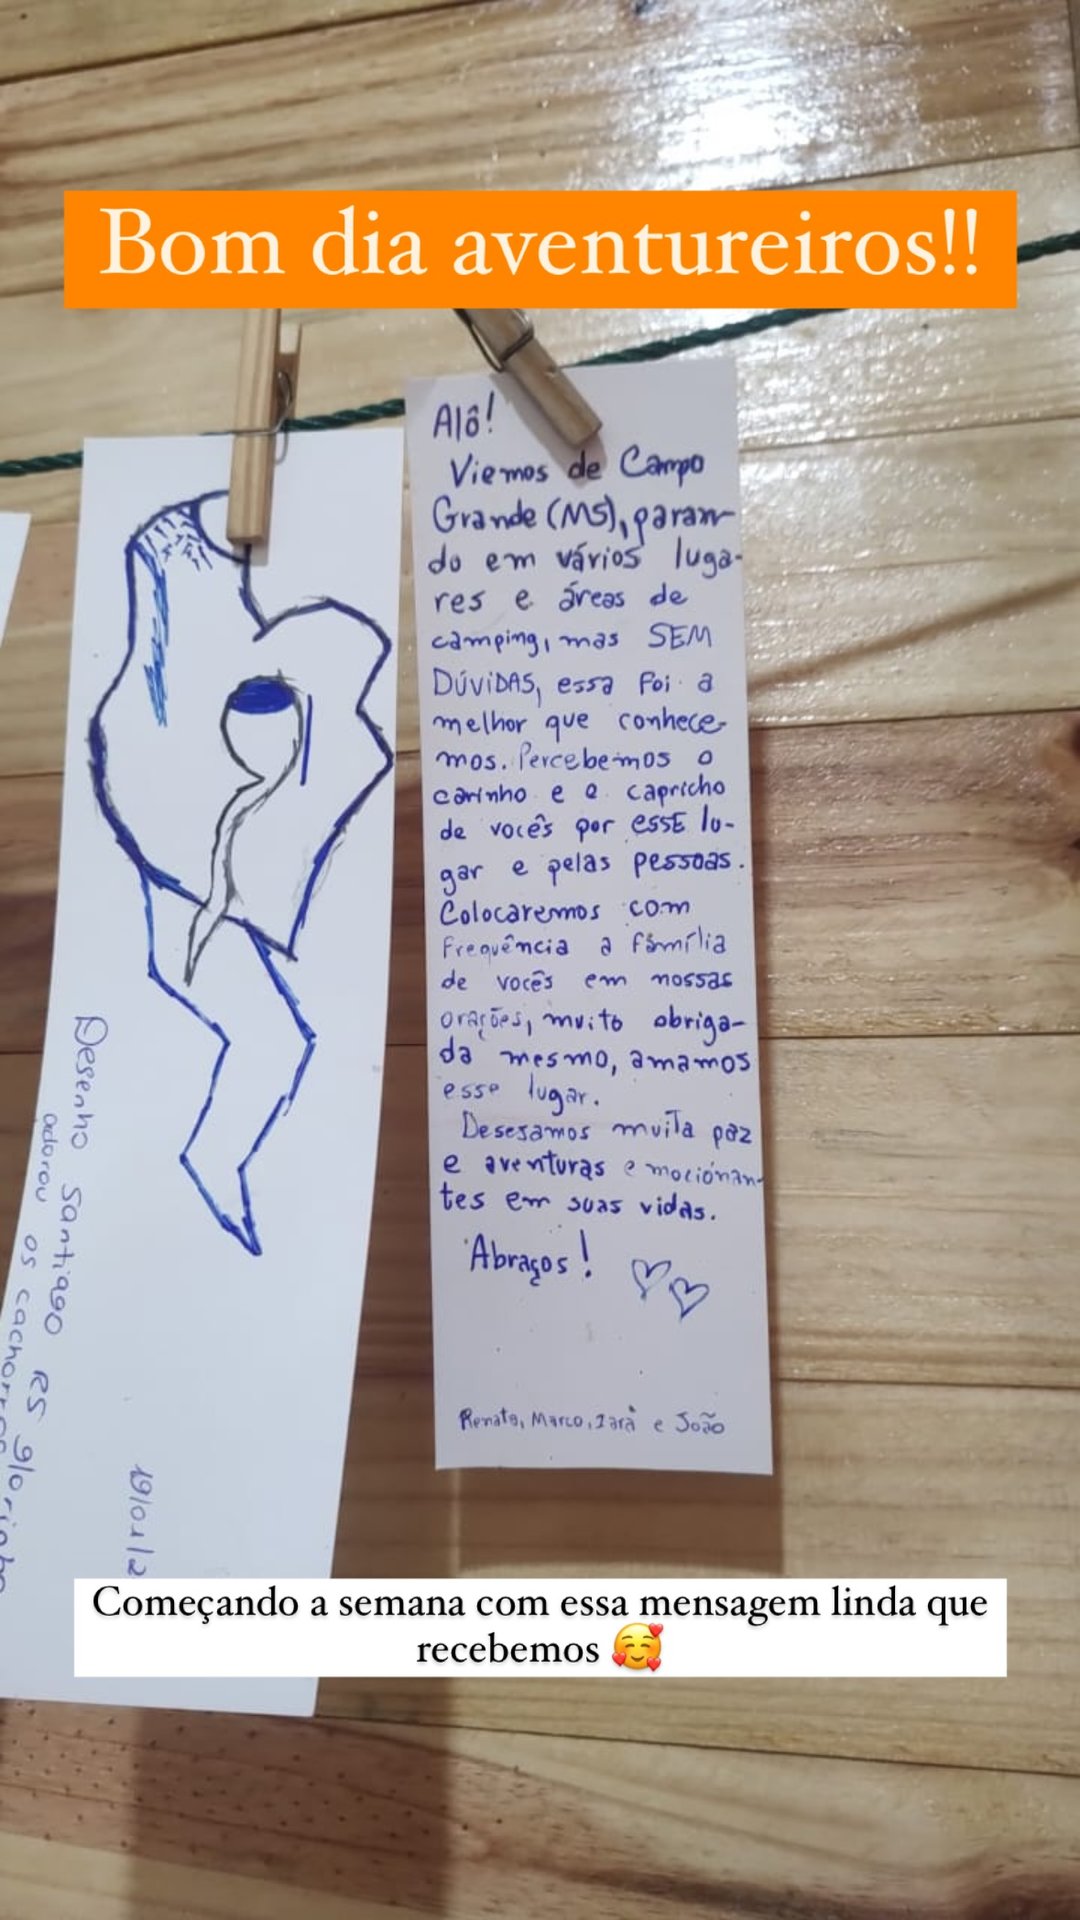 Bom dia aventureiros!!
Alô!
Viemos de Campo
Grande (MS), paran-
do em vários luga-
res e áreas de
camping, mas SEM
DÚVIDAS, essa foi a
melhor que conhece-
mos. Percebemos o
carinho e o capricho
de vocês por esse lu-
gar e pelas pessoas.
Colocaremos com
frequência a família
de vocês em nossas
orações, muito obriga-
da mesmo, amamos
esse lugar.
Desejamos muita paz
e aventuras emocionan-
tes em suas vidas.
Abraços!
Renato, Marco, Iara e João
Desenho Santiago RS
adorou os
19/01/2
Começando a semana com essa mensagem linda que
recebemos 🥰